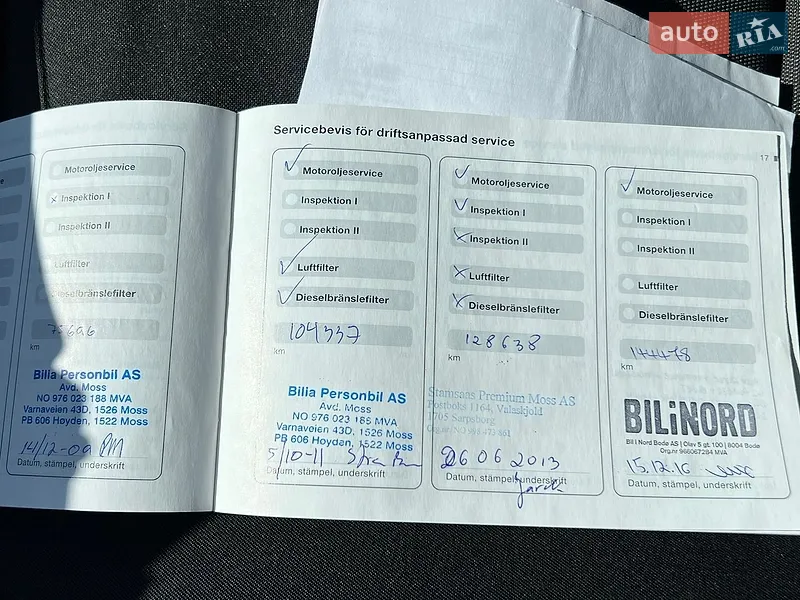 auto RIA .com
Servicebevis för driftsanpassad service
17
Motoroljeservice
Inspektion I
Inspektion II
Luftfilter
Dieselbränslefilter
75696
km
Bilia Personbil AS
Avd. Moss
NO 976 023 188 MVA
Varnaveien 43D, 1526 Moss
PB 606 Høyden, 1522 Moss
14/12-09
Datum, stämpel, underskrift
Motoroljeservice
Inspektion I
Inspektion II
Luftfilter
Dieselbränslefilter
104337
km
Bilia Personbil AS
Avd. Moss
NO 976 023 188 MVA
Varnaveien 43D, 1526 Moss
PB 606 Høyden, 1522 Moss
5/10-11
Datum, stämpel, underskrift
Motoroljeservice
Inspektion I
Inspektion II
Luftfilter
Dieselbränslefilter
128638
km
Stamsaas Premium Moss AS
Postboks 1164, Valaskjold
1705 Sarpsborg
06 06 2013
Datum, stämpel, underskrift
Motoroljeservice
Inspektion I
Inspektion II
Luftfilter
Dieselbränslefilter
km
BILiNORD
Bil i Nord Bodø AS | Olav 5 gt. 100 | 8004 Bodø
Org.nr 966067284 MVA
15.12.16
Datum, stämpel, underskrift